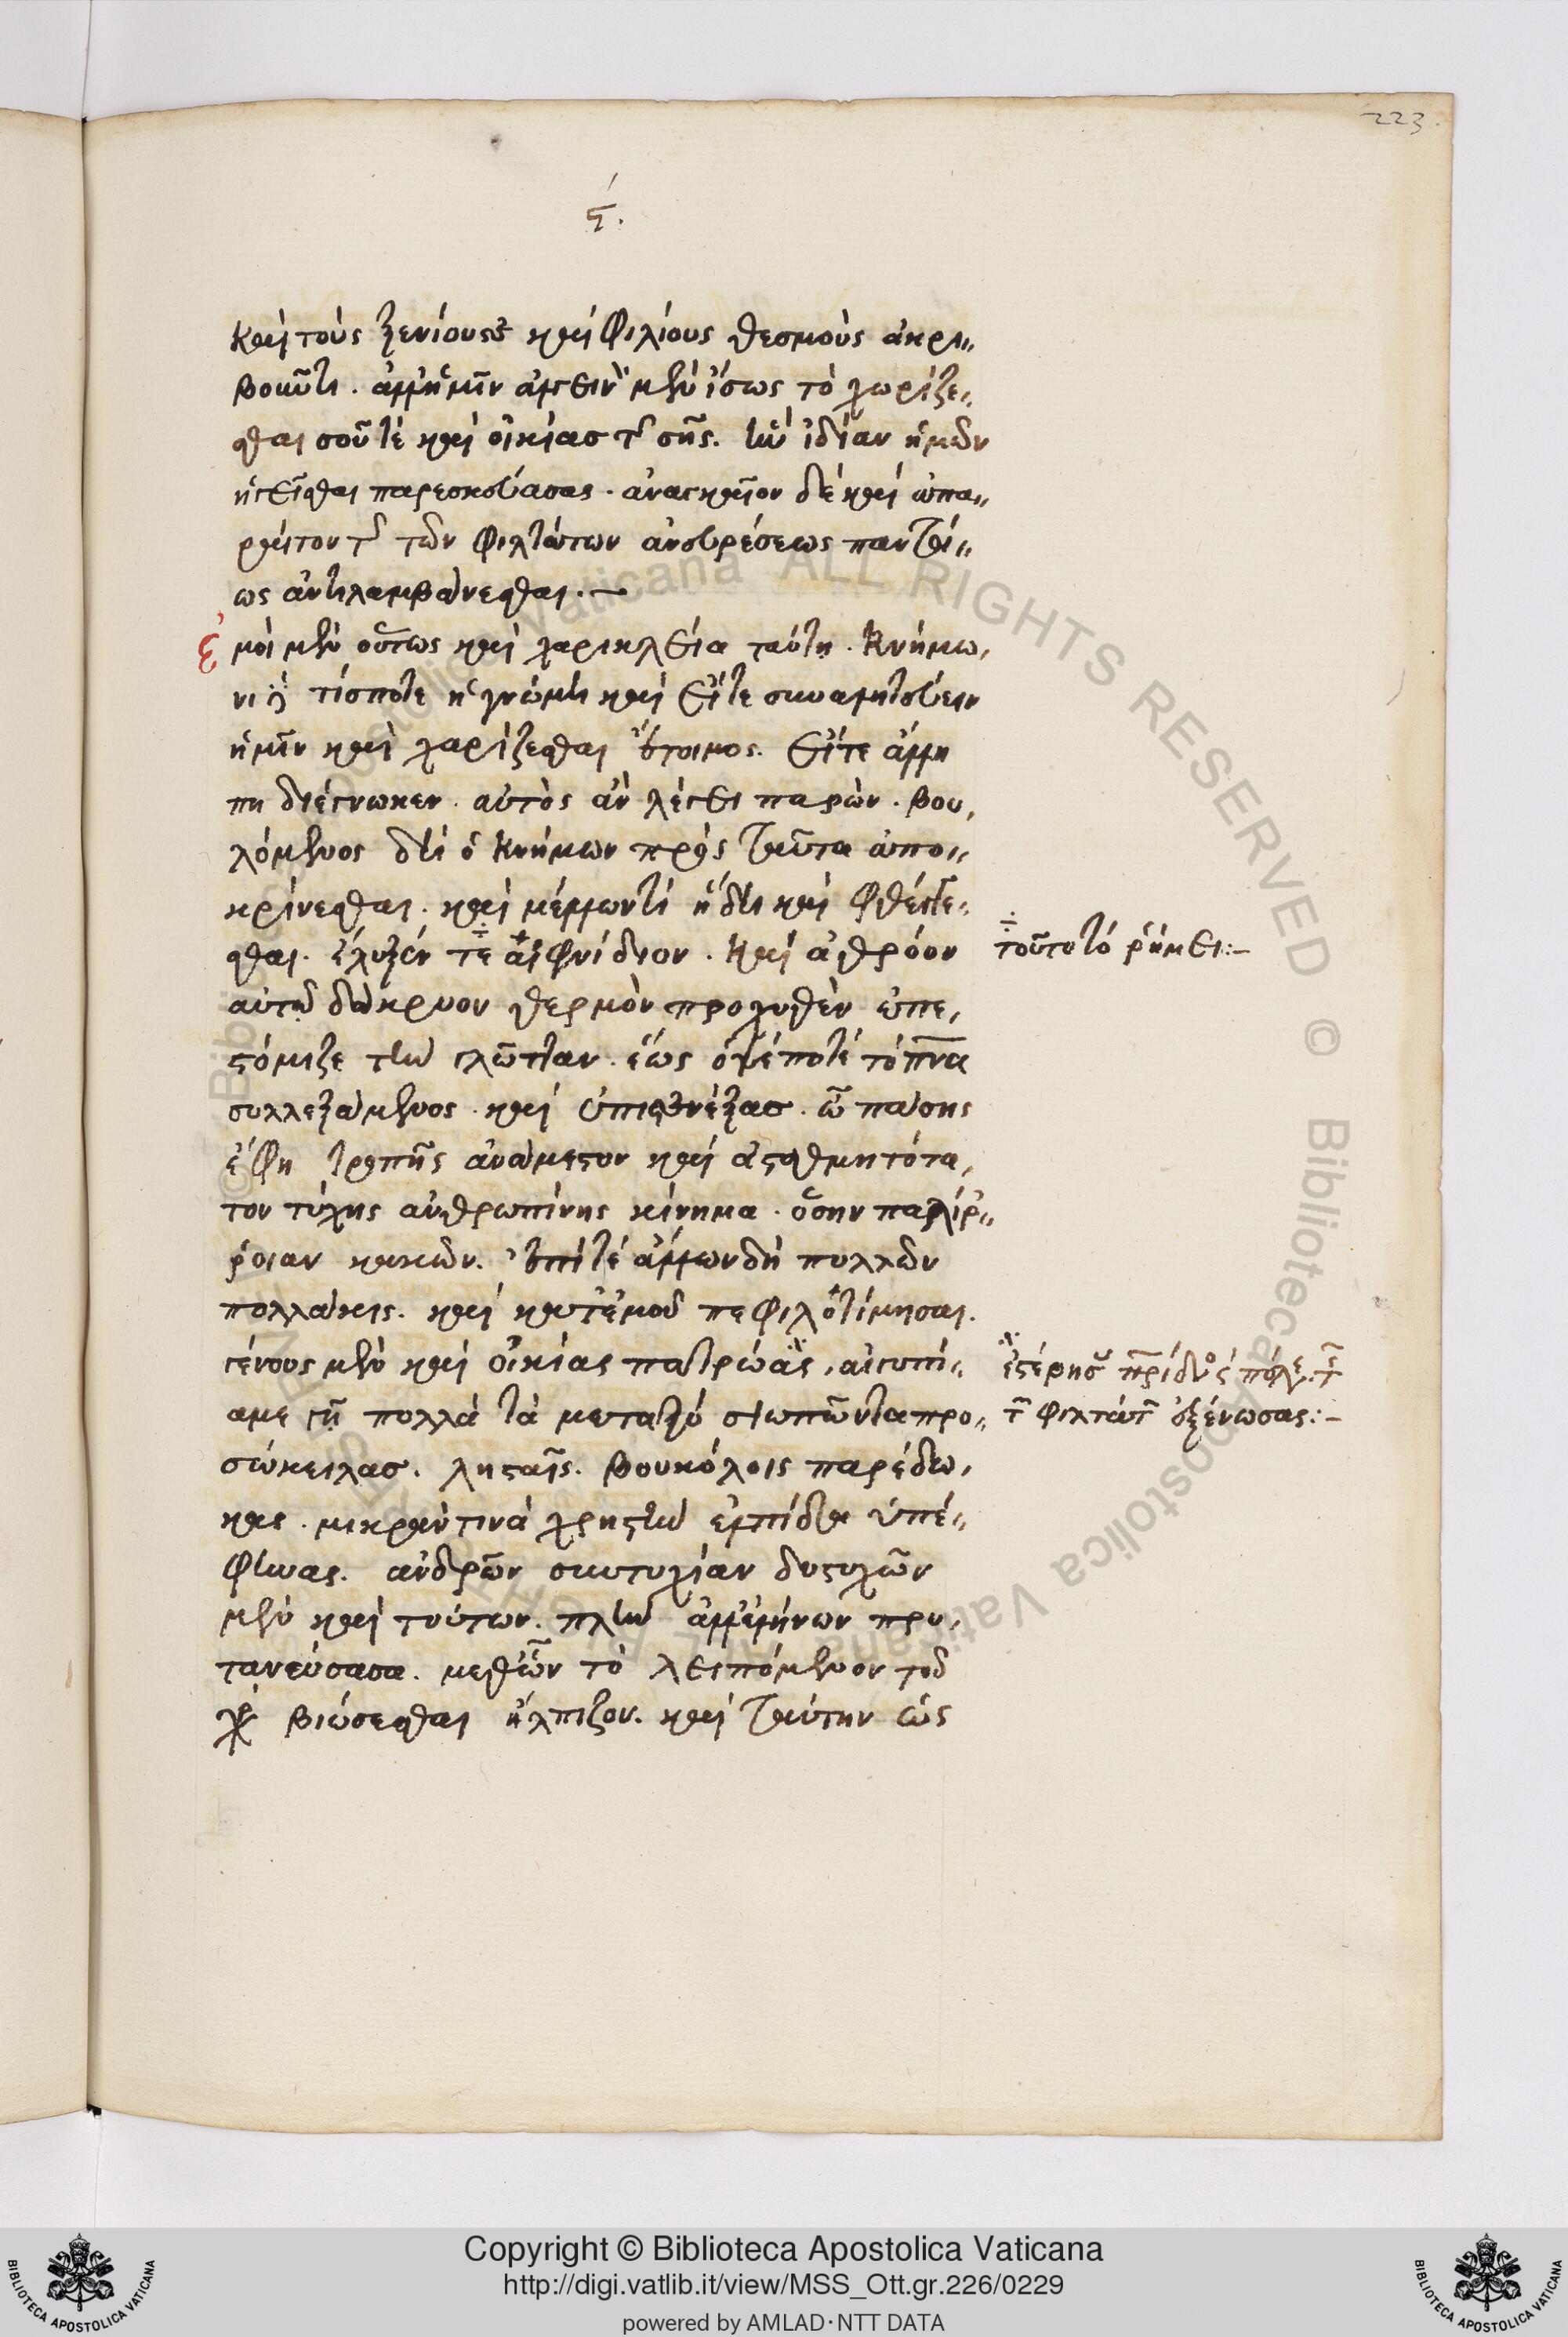 223.
ϛʹ.
καὶ τοὺς ξενίους τε καὶ φιλίους θεσμοὺς ἀκρι
βοῦντι. ἀλλ' ἡμῖν ἀλγεινὸν μὲν ἴσως τὸ χωρίζε
σθαι σοῦ τὲ καὶ οἰκίας τῆς σῆς. ἣν ἰδίαν ἡμῶν
ἡγεῖσθαι παρεσκεύασας. ἀναγκαῖον δὲ καὶ ἀπα
ραίτον τῆς τῶν φιλτάτων ἀνευρέσεως παντοί
ως ἀντιλαμβάνεσθαι.
ἐμοὶ μὲν οὕτως καὶ χαρικλεία ταύτῃ. κνήμω
νι δὲ τίσποτε ἡ γνώμη καὶ εἴτε συναλητεύειν
ἡμῖν καὶ χαρίζεσθαι ἕτοιμος. εἴτε ἄλλη
πη διέγνωκεν. αὐτὸς ἂν λέγει παρών. βου
λόμενος δὲ ὁ κνήμων πρὸς ταῦτα ἀπο
κρίνεσθαι. καὶ μέλλων τὶ ἤδη καὶ φθέγγε
σθαι. ἔλυξέν τε αἰφνίδιον. καὶ ἀθρόον
αὐτῶ δάκρυον θερμὸν προχυθὲν ἐπε
στόμιζε τὴν γλῶτταν. ἕως ὀψέποτὲ τὸ πνα
συλλεξάμενος. καὶ ἐπιστενάξας. ὦ πάσης
ἔφη τροπῆς ἀνάμεστον καὶ ἀσταθμητότα
τον τύχης ἀνθρωπίνης κίνημα. ὅσην παλίρ
ροιαν κακῶν. ἐπί τε ἄλλων δὴ πολλῶν
πολλάκις. καὶ κατ' ἐμοῦ πεφιλοτίμησαι.
γένους μὲν καὶ οἰκίας πατρώας,
αμε γῆ πολλὰ τὰ μεταξὺ σιωπῶντα προ
σώκειλας. λησταῖς. βουκόλοις παρέδω
κας. μικράν τινὰ χρηστὴν ἐλπίδα ὑπέ
φηνας. ἀνδρῶν συντυχίαν δυστυχῶν
μὲν καὶ τούτων. πλὴν ἀλλ' ἑλλήνων πρυ
τανεύσασα. μεθ' ὧν τὸ λειπόμενον τοῦ
βιώσεσθαι ἤλπιζον. καὶ ταύτην ὡς
τοῦτο τὸ ῥῆμ
ἐστέρησ
φιλτάτ ἐξένωσας:
Copyright © Biblioteca Apostolica Vaticana
http://digi.vatlib.it/view/MSS_Ott.gr.226/0229
powered by AMLAD·NTT DATA
BIBLIOTECA APOSTOLICA VATICANA
BIBLIOTECA APOSTOLICA VATICANA